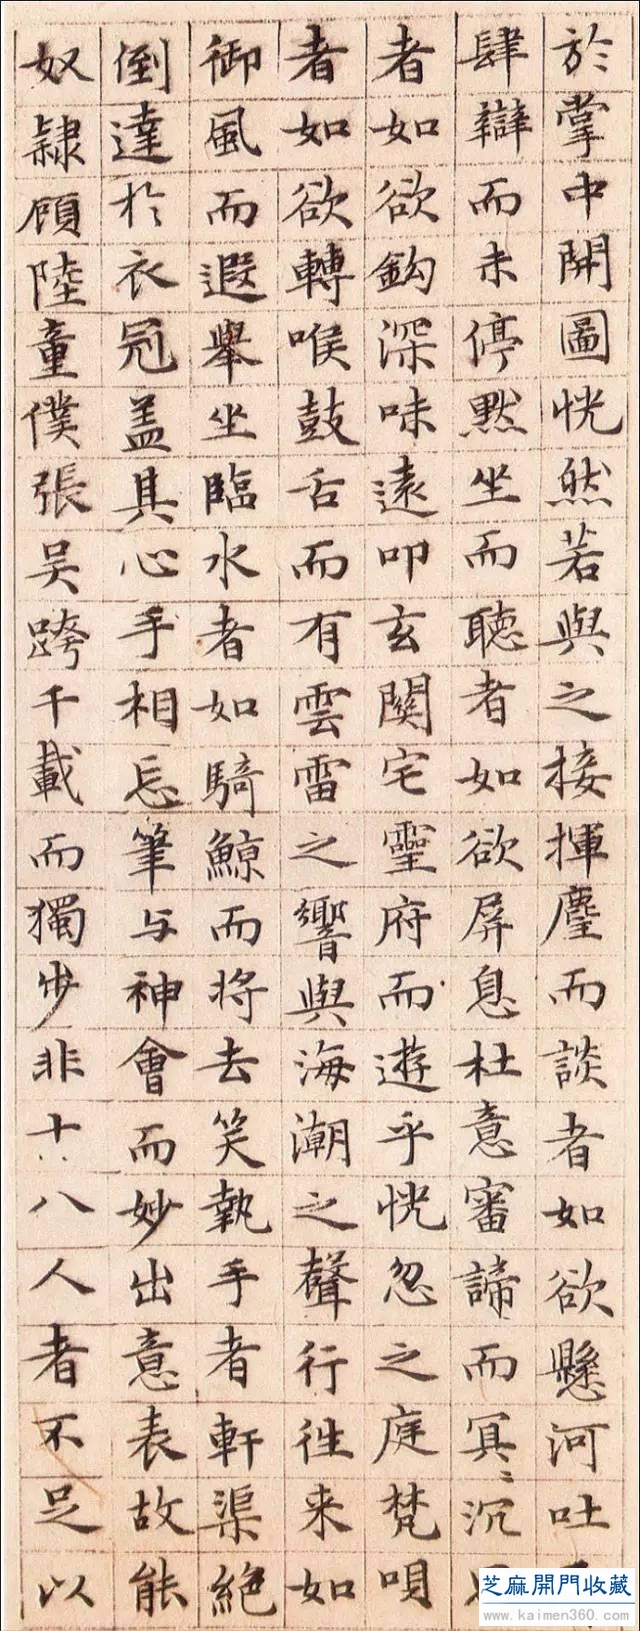 於掌中開圖恍然若與之接揮麈而談者如欲懸河吐
肆辯而未停默坐而聽者如欲屏息杜意審諦而冥〻沉
者如欲鈎深味遠叩玄關宅靈府而遊乎恍忽之庭梵唄
者如欲轉喉鼓舌而有雲雷之響與海潮之聲行往来如
御風而遐舉坐臨水者如騎鯨而将去笑執手者軒渠絕
倒達於衣冠盖其心手相忘筆与神會而妙出意表故能
奴隷顧陸童僕張吴跨千載而獨步非十八人者不足以
芝麻開門收藏
www.kaimen360.com